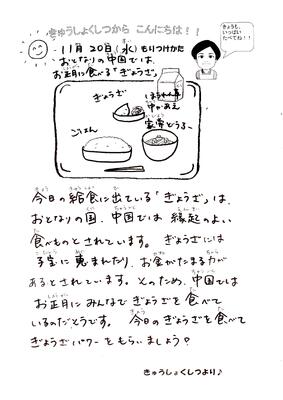 きゅうしょくしつから こんにちは！！
きょうも、
いっぱい
たべてね！！
11月20日(水) もりつけかた
おとなりの中国では、
お正月に食べる「ぎょうざ」
ぎょうざ
ごはん
今日の給食に出ている「ぎょうざ」は、
おとなりの国、中国では 縁起のよい
食べものとされています。 ぎょうざには
子宝に恵まれたり、お金がたまる力が
あるとされています。そのため、中国では
お正月にみんなでぎょうざを食べて
いるのだそうです。 今日のぎょうざを食べて
ぎょうざパワーをもらいましょう♪
きゅうしょくしつより♪